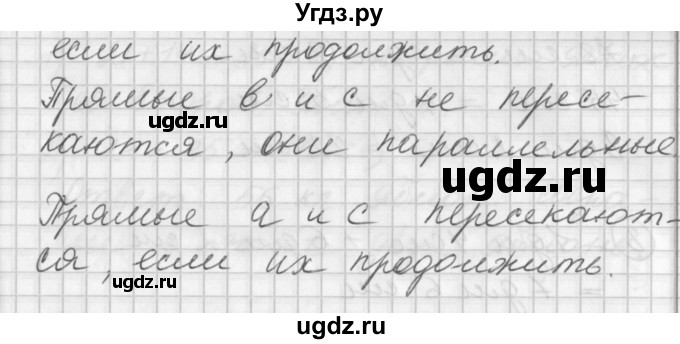 Угдз.ру
если их продолжить.
Прямые в и с не пересе-
каются, они параллельные.
ugdz.ru
ugdz.ru
Прямые а и с пересекают-
ся, если их продолжить.
ugdz.ru
ugdz.ru